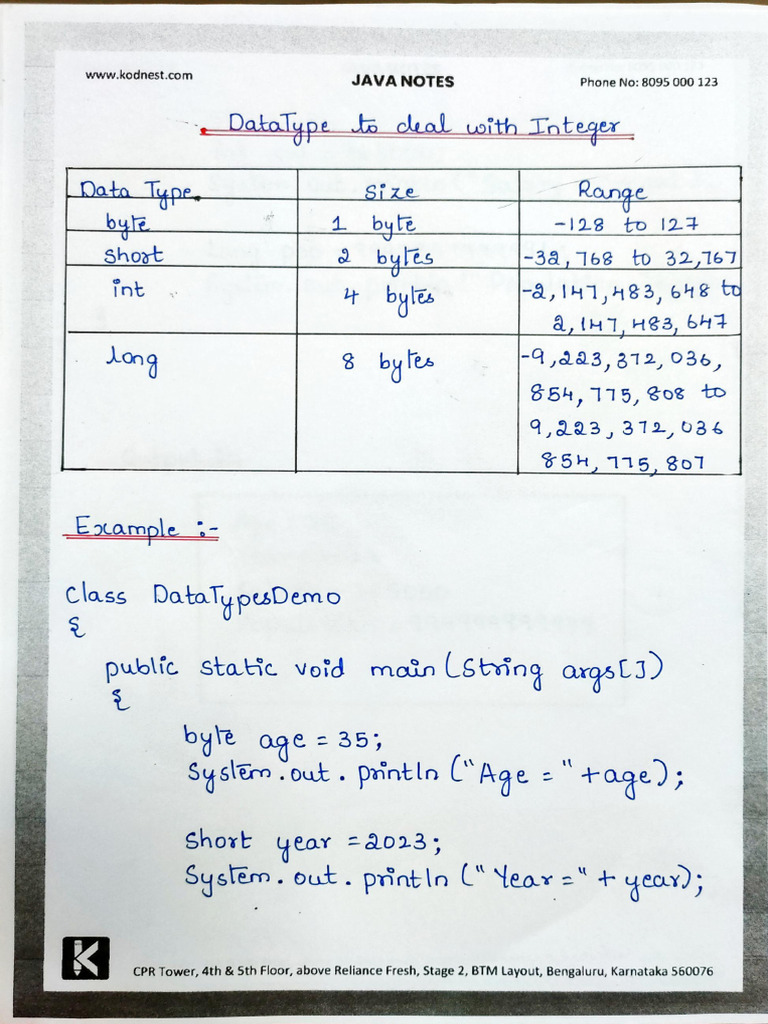 www.kodnest.com
JAVA NOTES
Phone No: 8095 000 123
DataType to deal with Integer
Data Type Size Range
byte 1 byte -128 to 127
short 2 bytes -32,768 to 32,767
int 4 bytes -2,147,483,648 to
2,147,483,647
long 8 bytes -9,223,372,036,
854,775,808 to
9,223,372,036
854,775,807
Example :-
class DataTypesDemo
{
public static void main(String args[])
{
byte age = 35;
System.out.println("Age = "+age);
short year =2023;
System.out.println("Year =" + year);
K
CPR Tower, 4th & 5th Floor, above Reliance Fresh, Stage 2, BTM Layout, Bengaluru, Karnataka 560076